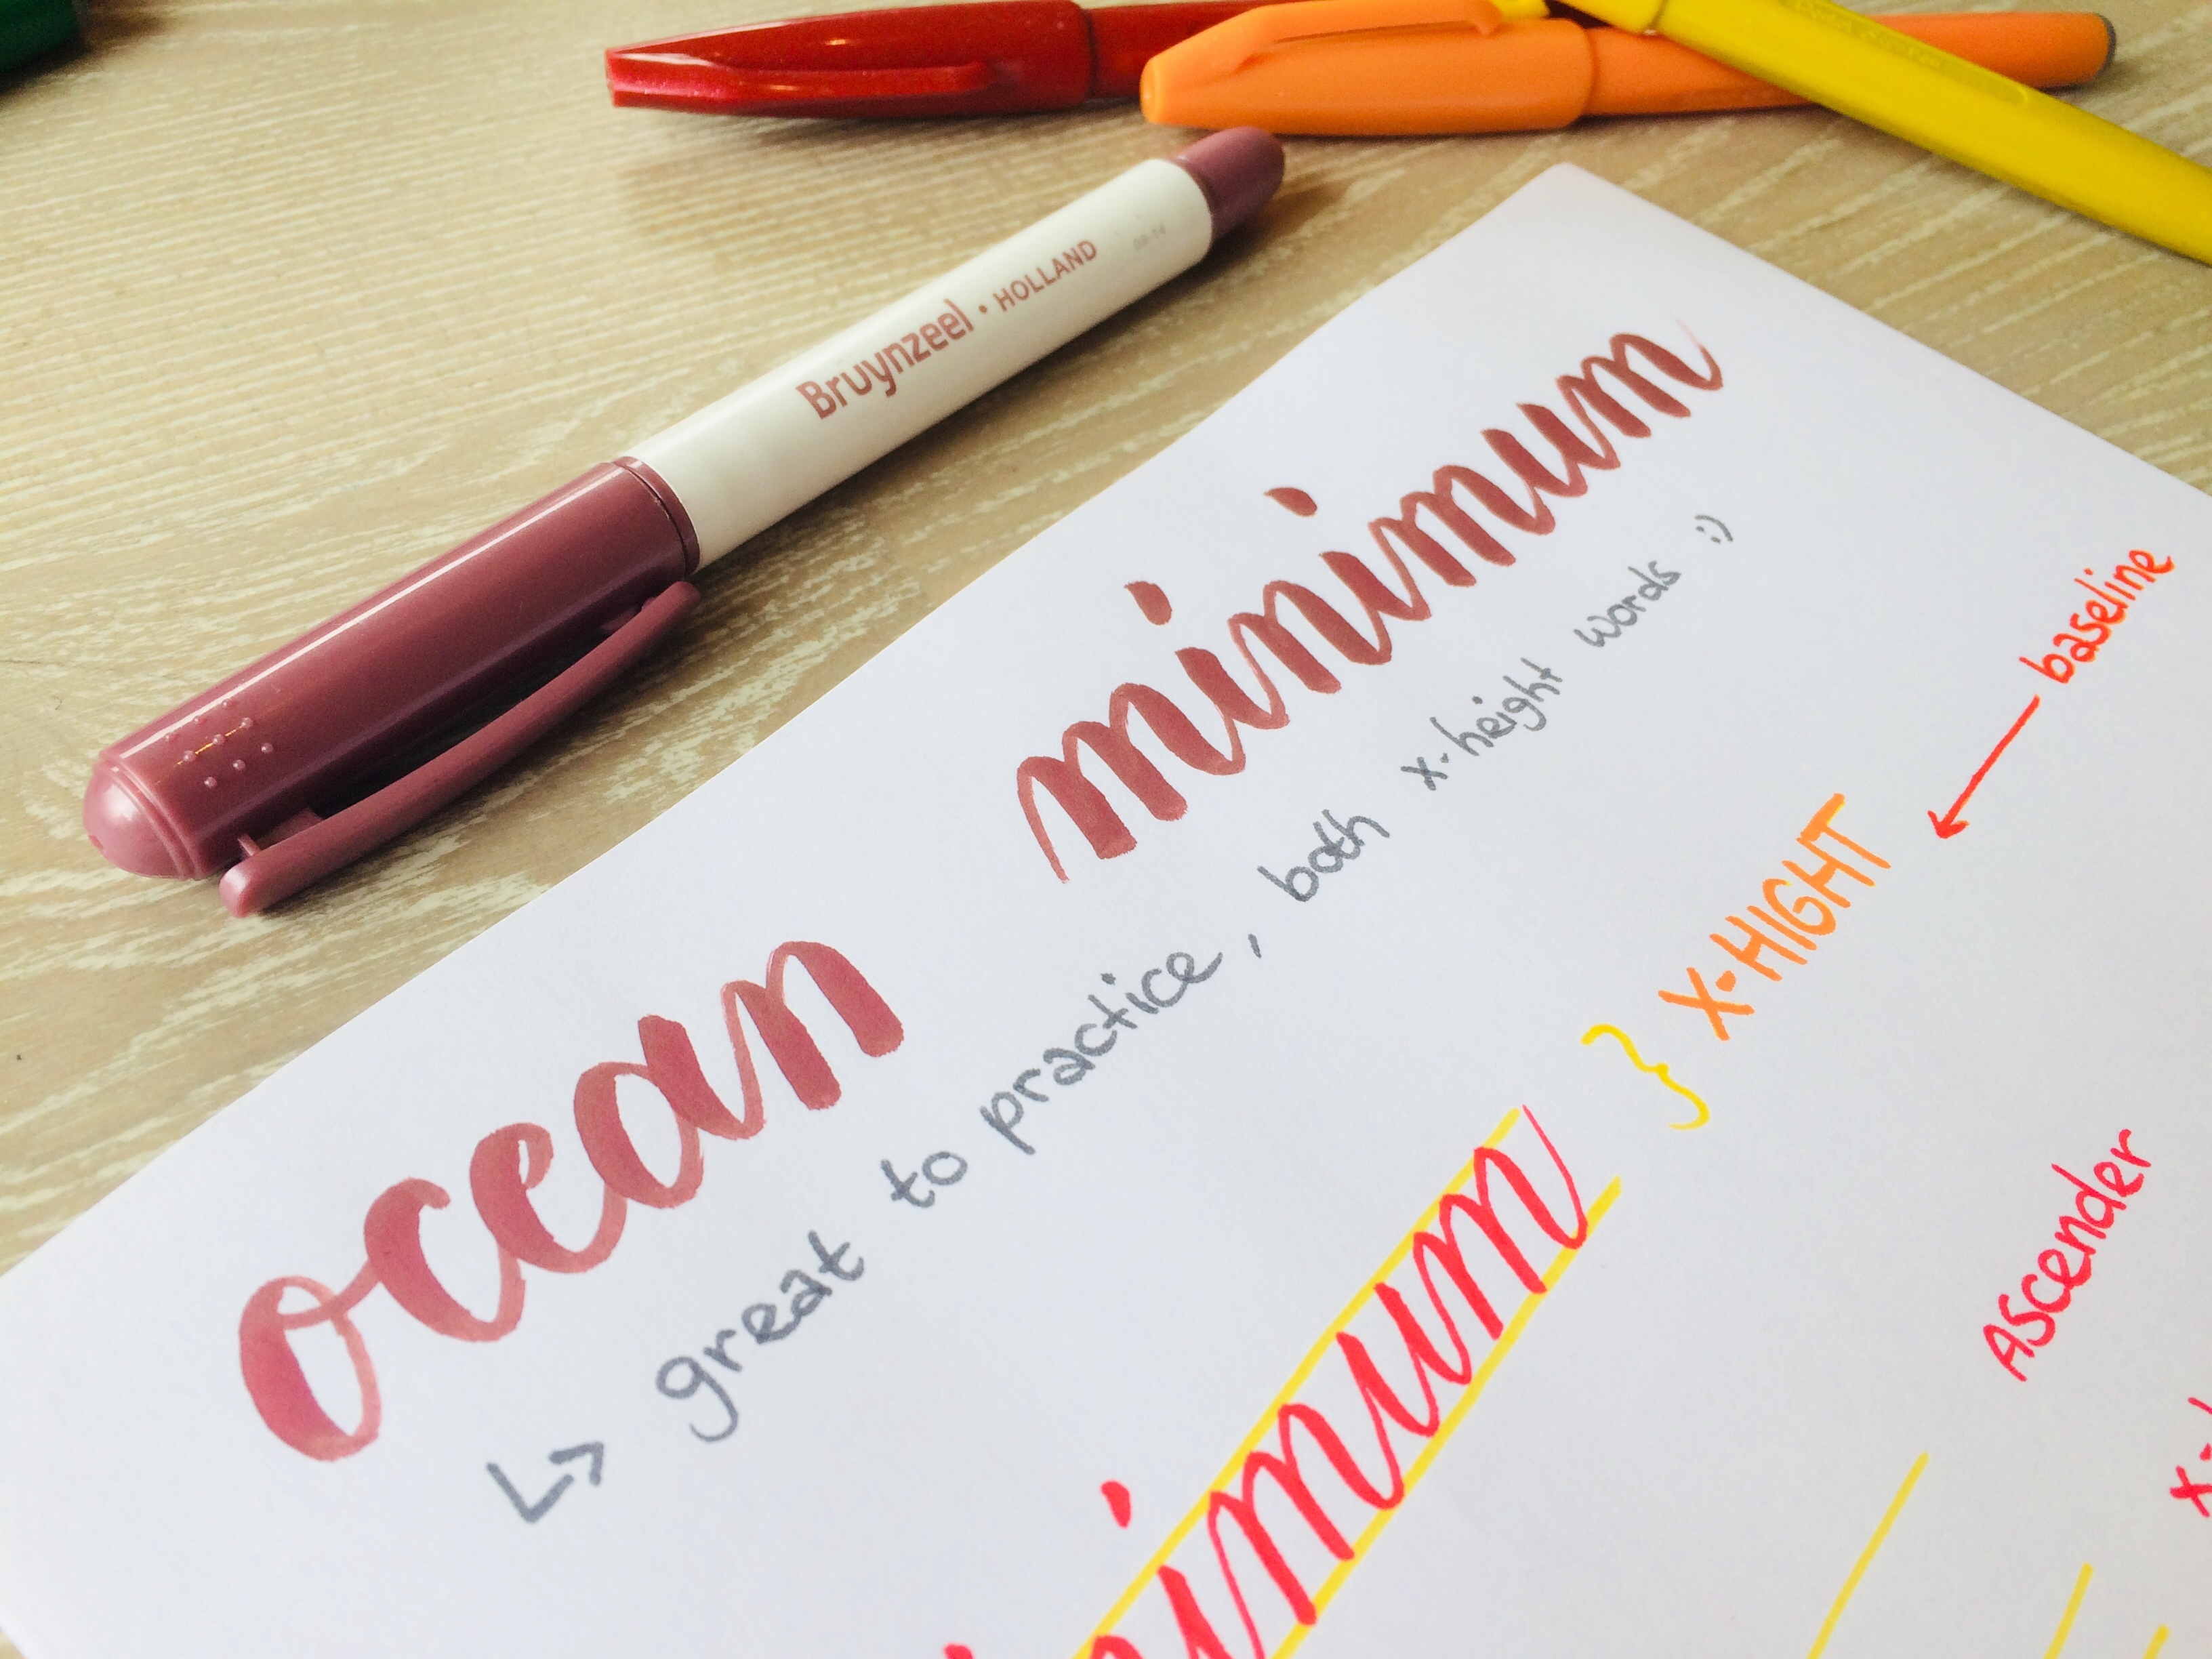 Bruynzeel • HOLLAND
ocean minimum
↳ great to practice, both x-height words :)
baseline
} X-HIGHT
Ascender